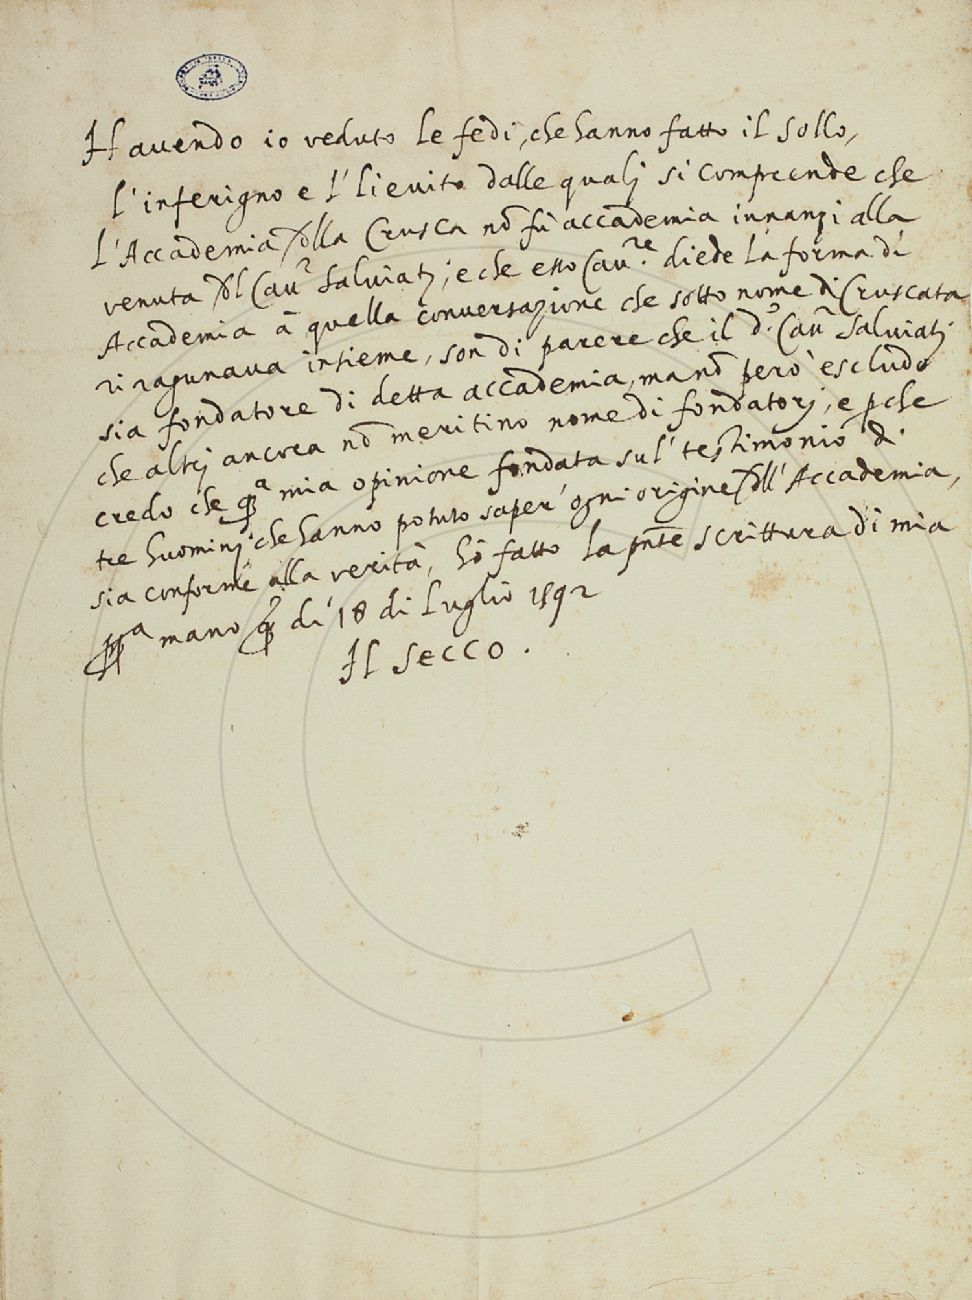 Havendo io veduto le fedi, che hanno fatto il Sollo,
l'inferigno e l' lievito dalle qualj si comprende che
l'Accademia dlla Crusca nō fù accademia innanzi alla
venuta dl Cavr Salviatj; e che esso Cavre. diede la forma di
Accademia à quella conversazione che sotto nome di Cruscata
si ragunava insieme, son di parere che il do. Cavr Salviatj
sia fondatore di detta accademia, ma nō però escludo
che altrj ancora nō meritino nome di fondatorj, e pche
credo che qa mia opinione fondata sul' testimonio di
tre huominj che hanno potuto saper' ogni origine dll' Accademia,
sia conforme alla verità, hò fatto la pnte scrittura di mia
ppa mano qo dì 18 di Luglio 1592
Il Secco.